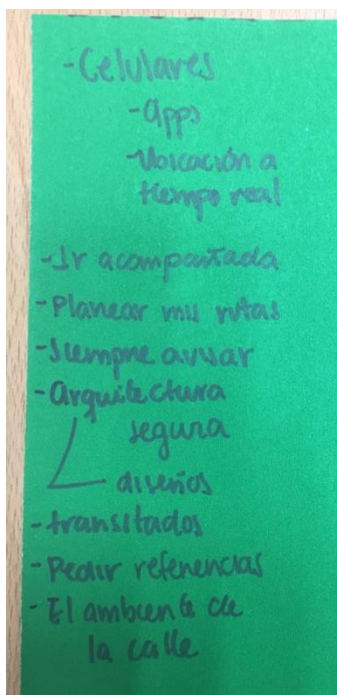 -Celulares
-Apps
-Ubicación a
tiempo real
-Ir acompañada
-Planear mis rutas
-Siempre avisar
-Arquitectura
segura
diseños
-transitados
-Pedir referencias
-El ambiente de
la calle